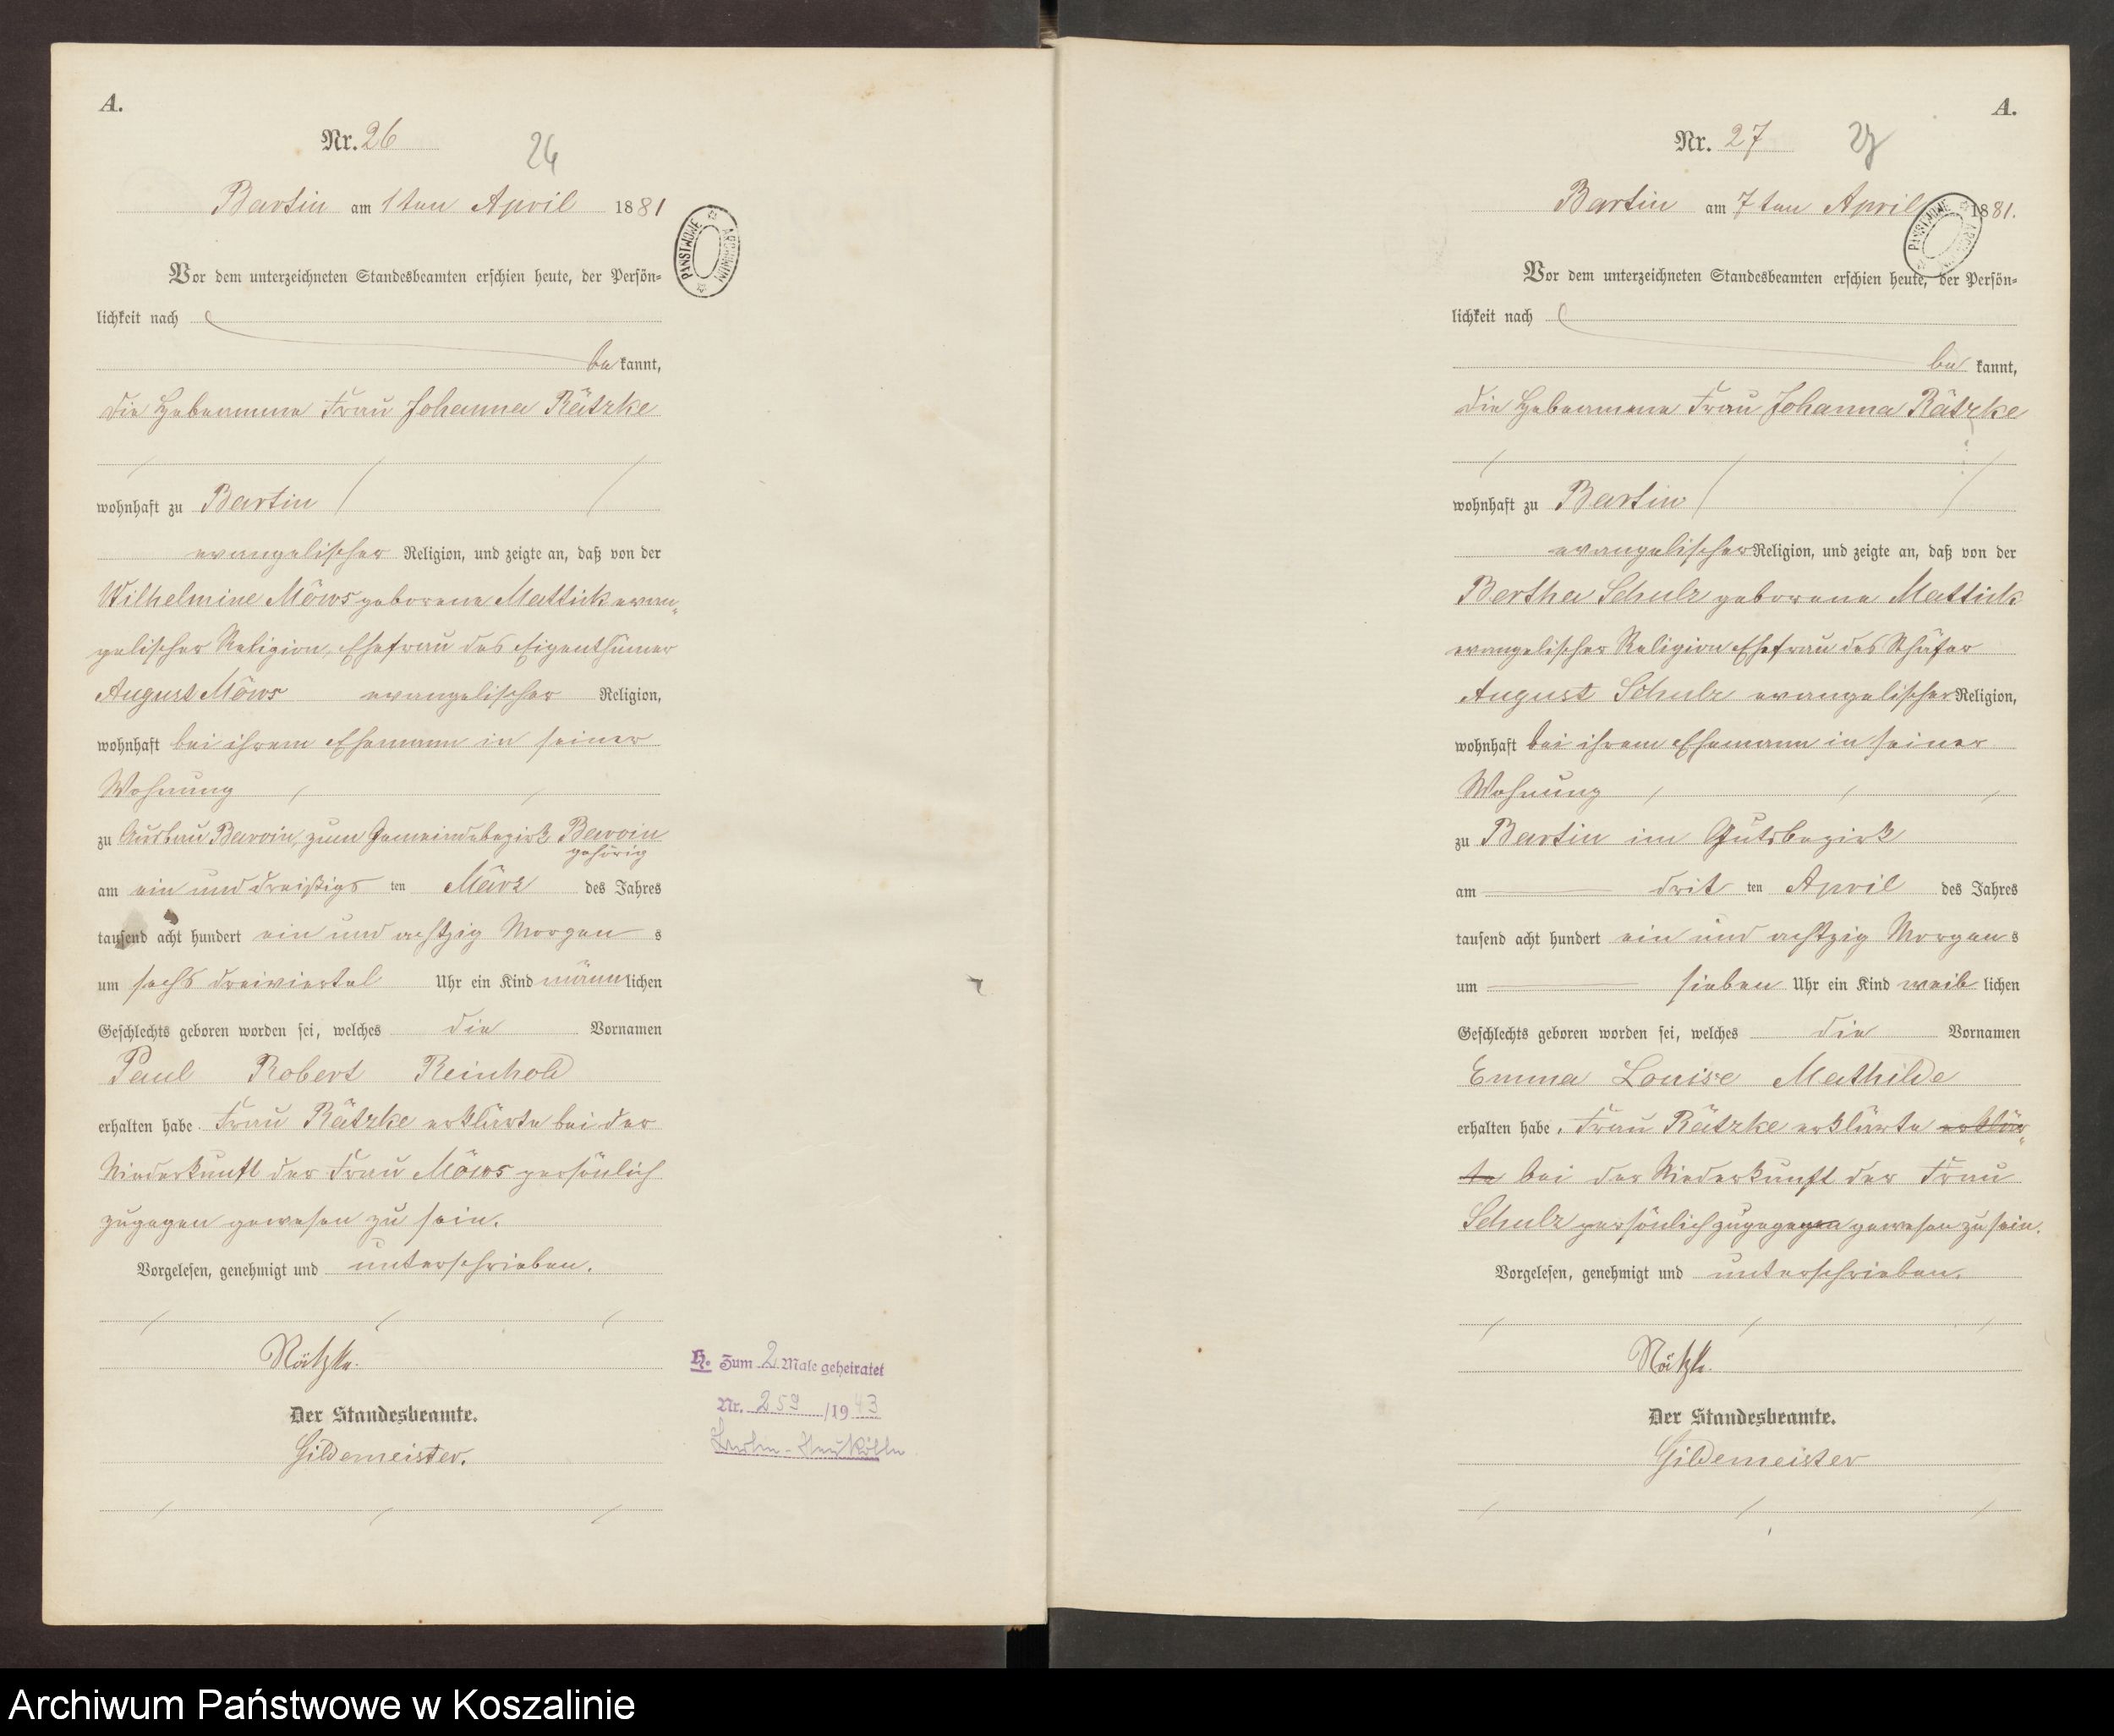 A.
Nr. 26
26
Bartin am 1ten April 1881
PAŃSTWOWE ARCHIWUM
Vor dem unterzeichneten Standesbeamten erschien heute, der Persön-
lichkeit nach
be kannt,
die Hebeamme Frau Johanna Rätzke
wohnhaft zu Bartin
evangelischer Religion, und zeigte an, daß von der
Wilhelmine Möws geborene Mattick evan-
gelischer Religion, Ehefrau des Eigenthümer
August Möws evangelischer Religion,
wohnhaft bei ihrem Ehemann in seiner
Wohnung
zu Ausbau Barvin, zum Gemeindebezirk Barvin
gehörig
am ein und dreißigs ten März des Jahres
tausend acht hundert ein und achtzig Morgen s
um sechs dreiviertel Uhr ein Kind männ lichen
Geschlechts geboren worden sei, welches die Vornamen
Paul Robert Reinhold
erhalten habe. Frau Rätzke erklärte bei der
Niederkunft der Frau Möws persönlich
zugegen gewesen zu sein.
Vorgelesen, genehmigt und unterschrieben.
Rätzke.
Der Standesbeamte.
Gildemeister.
H. Zum 2 Male geheiratet
Nr. 259 /1943
Berlin-Neukölln
A.
Nr. 27
27
Bartin am 7ten April 1881.
PAŃSTWOWE ARCHIWUM
Vor dem unterzeichneten Standesbeamten erschien heute, der Persön-
lichkeit nach
be kannt,
die Hebeamme Frau Johanna Rätzke
wohnhaft zu Bartin
evangelischer Religion, und zeigte an, daß von der
Bertha Schulz geborene Mattick
evangelischer Religion Ehefrau des Schäfer
August Schulz evangelischer Religion,
wohnhaft bei ihrem Ehemann in seiner
Wohnung
zu Bartin im Gutsbezirk
am drit ten April des Jahres
tausend acht hundert ein und achtzig Morgen s
um sieben Uhr ein Kind weib lichen
Geschlechts geboren worden sei, welches die Vornamen
Emma Louise Mathilde
erhalten habe. Frau Rätzke erklärte erklär-
te bei der Niederkunft der Frau
Schulz persönlich zugegen gewesen zu sein.
Vorgelesen, genehmigt und unterschrieben.
Rätzke.
Der Standesbeamte.
Gildemeister
Archiwum Państwowe w Koszalinie